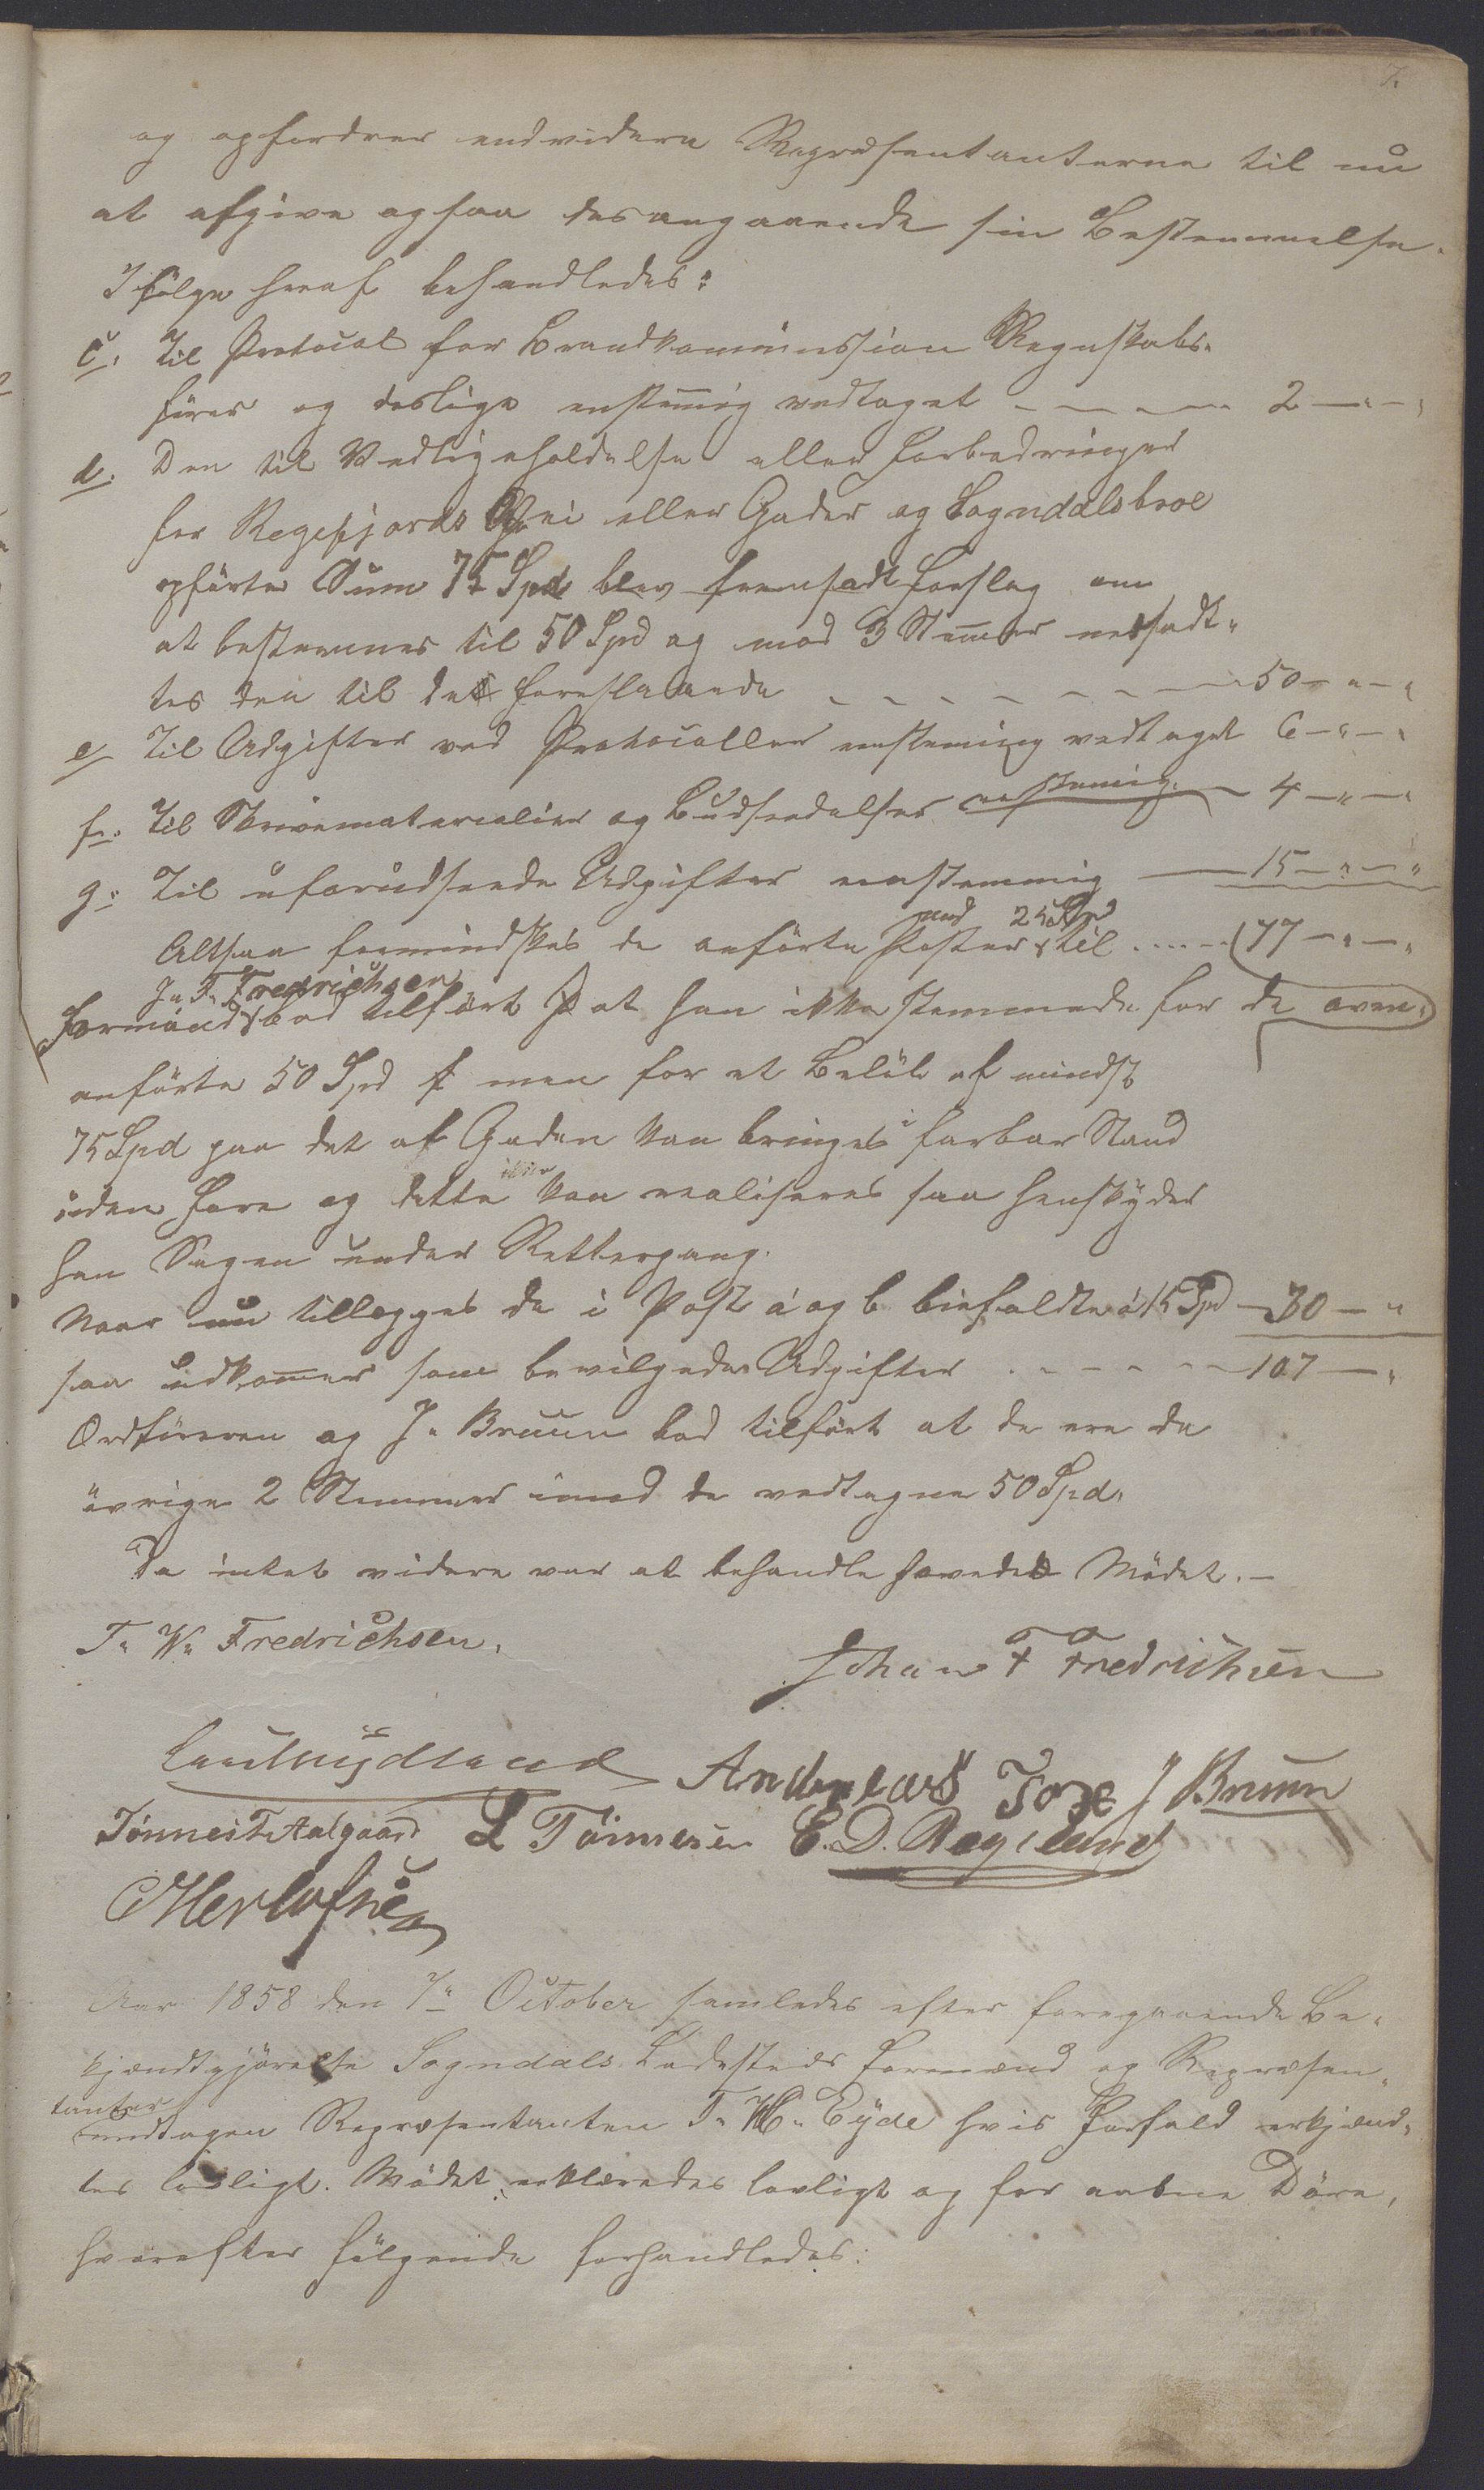 7.
og opfordrer endvidere Repræsentanterne til nu
at afgive ogsaa desangaaende sin Bestemmelse.
I følge heraf behandledes:
c: Til Protocol for Brandkommission Regnskabs-
fører og deslige enstemig vedtaget - - - - - 2 - " - "
d. Den til Vedligeholdelse eller Forbedringer
for Regefjords Vei eller Gader og Sogndalsbroe
opførte Sum 75 Spd blev fremsadt Forslag om
at bestemmes til 50 Spd og mod 3 Stemmer nedsadt-
tes den til det foreslaaende - - - - - - - 50 - " - "
e Til Udgifter ved Protocoller enstemig vedtaget 6 - " - "
f. Til Skrivematerialier og Budsendelser enstemig. - 4 - " - "
g: Til uforudseende Udgifter eenstemmig - 15 - " - "
med 25 Spd
Altsaa formindskes de anførte Poster til ..... 77 - " - "
J. F. Fredrichsen
Formand bad tilført at han ikke stemmede for de oven-
anførte 50 Spd men for et Beløb af mindst
75 Spd paa det at Gaden kan bringes i farbar Stand
uden Fare og dette ikke kan realiseres saa henskyder
han Sagen under Rettergang.
Naar nu tillægges de i Post a og b biefaldte á 15 Spd - 30 - "
saa udkommer som bevilgede Udgifter . - - - - 107 - "
Ordføreren og J. Bruun bad tilført at de ere de
øvrige 2 Stemmer imod de vedtagne 50 Spd.
Da intet videre var at behandle hævedes Mødet. -
T. W. Fredrichsen.
Johan F Fredrichsen
Andreas Tore J Bruun
Tønnes T Aalgaard L Tönnesen E. D. Regelund
Herlofsen
Aar 1858 den 7de October samledes efter foregaaende Be-
kjendtgjørelse Sogndals Ladesteds Formænd og Repræsen-
tanter
undtagen Repræsentanten T. Eyde hvis Forfald erkjend-
tes lovligt. Mødet erklæredes lovligt og for aabne Døre,
hvorefter følgende forhandledes: